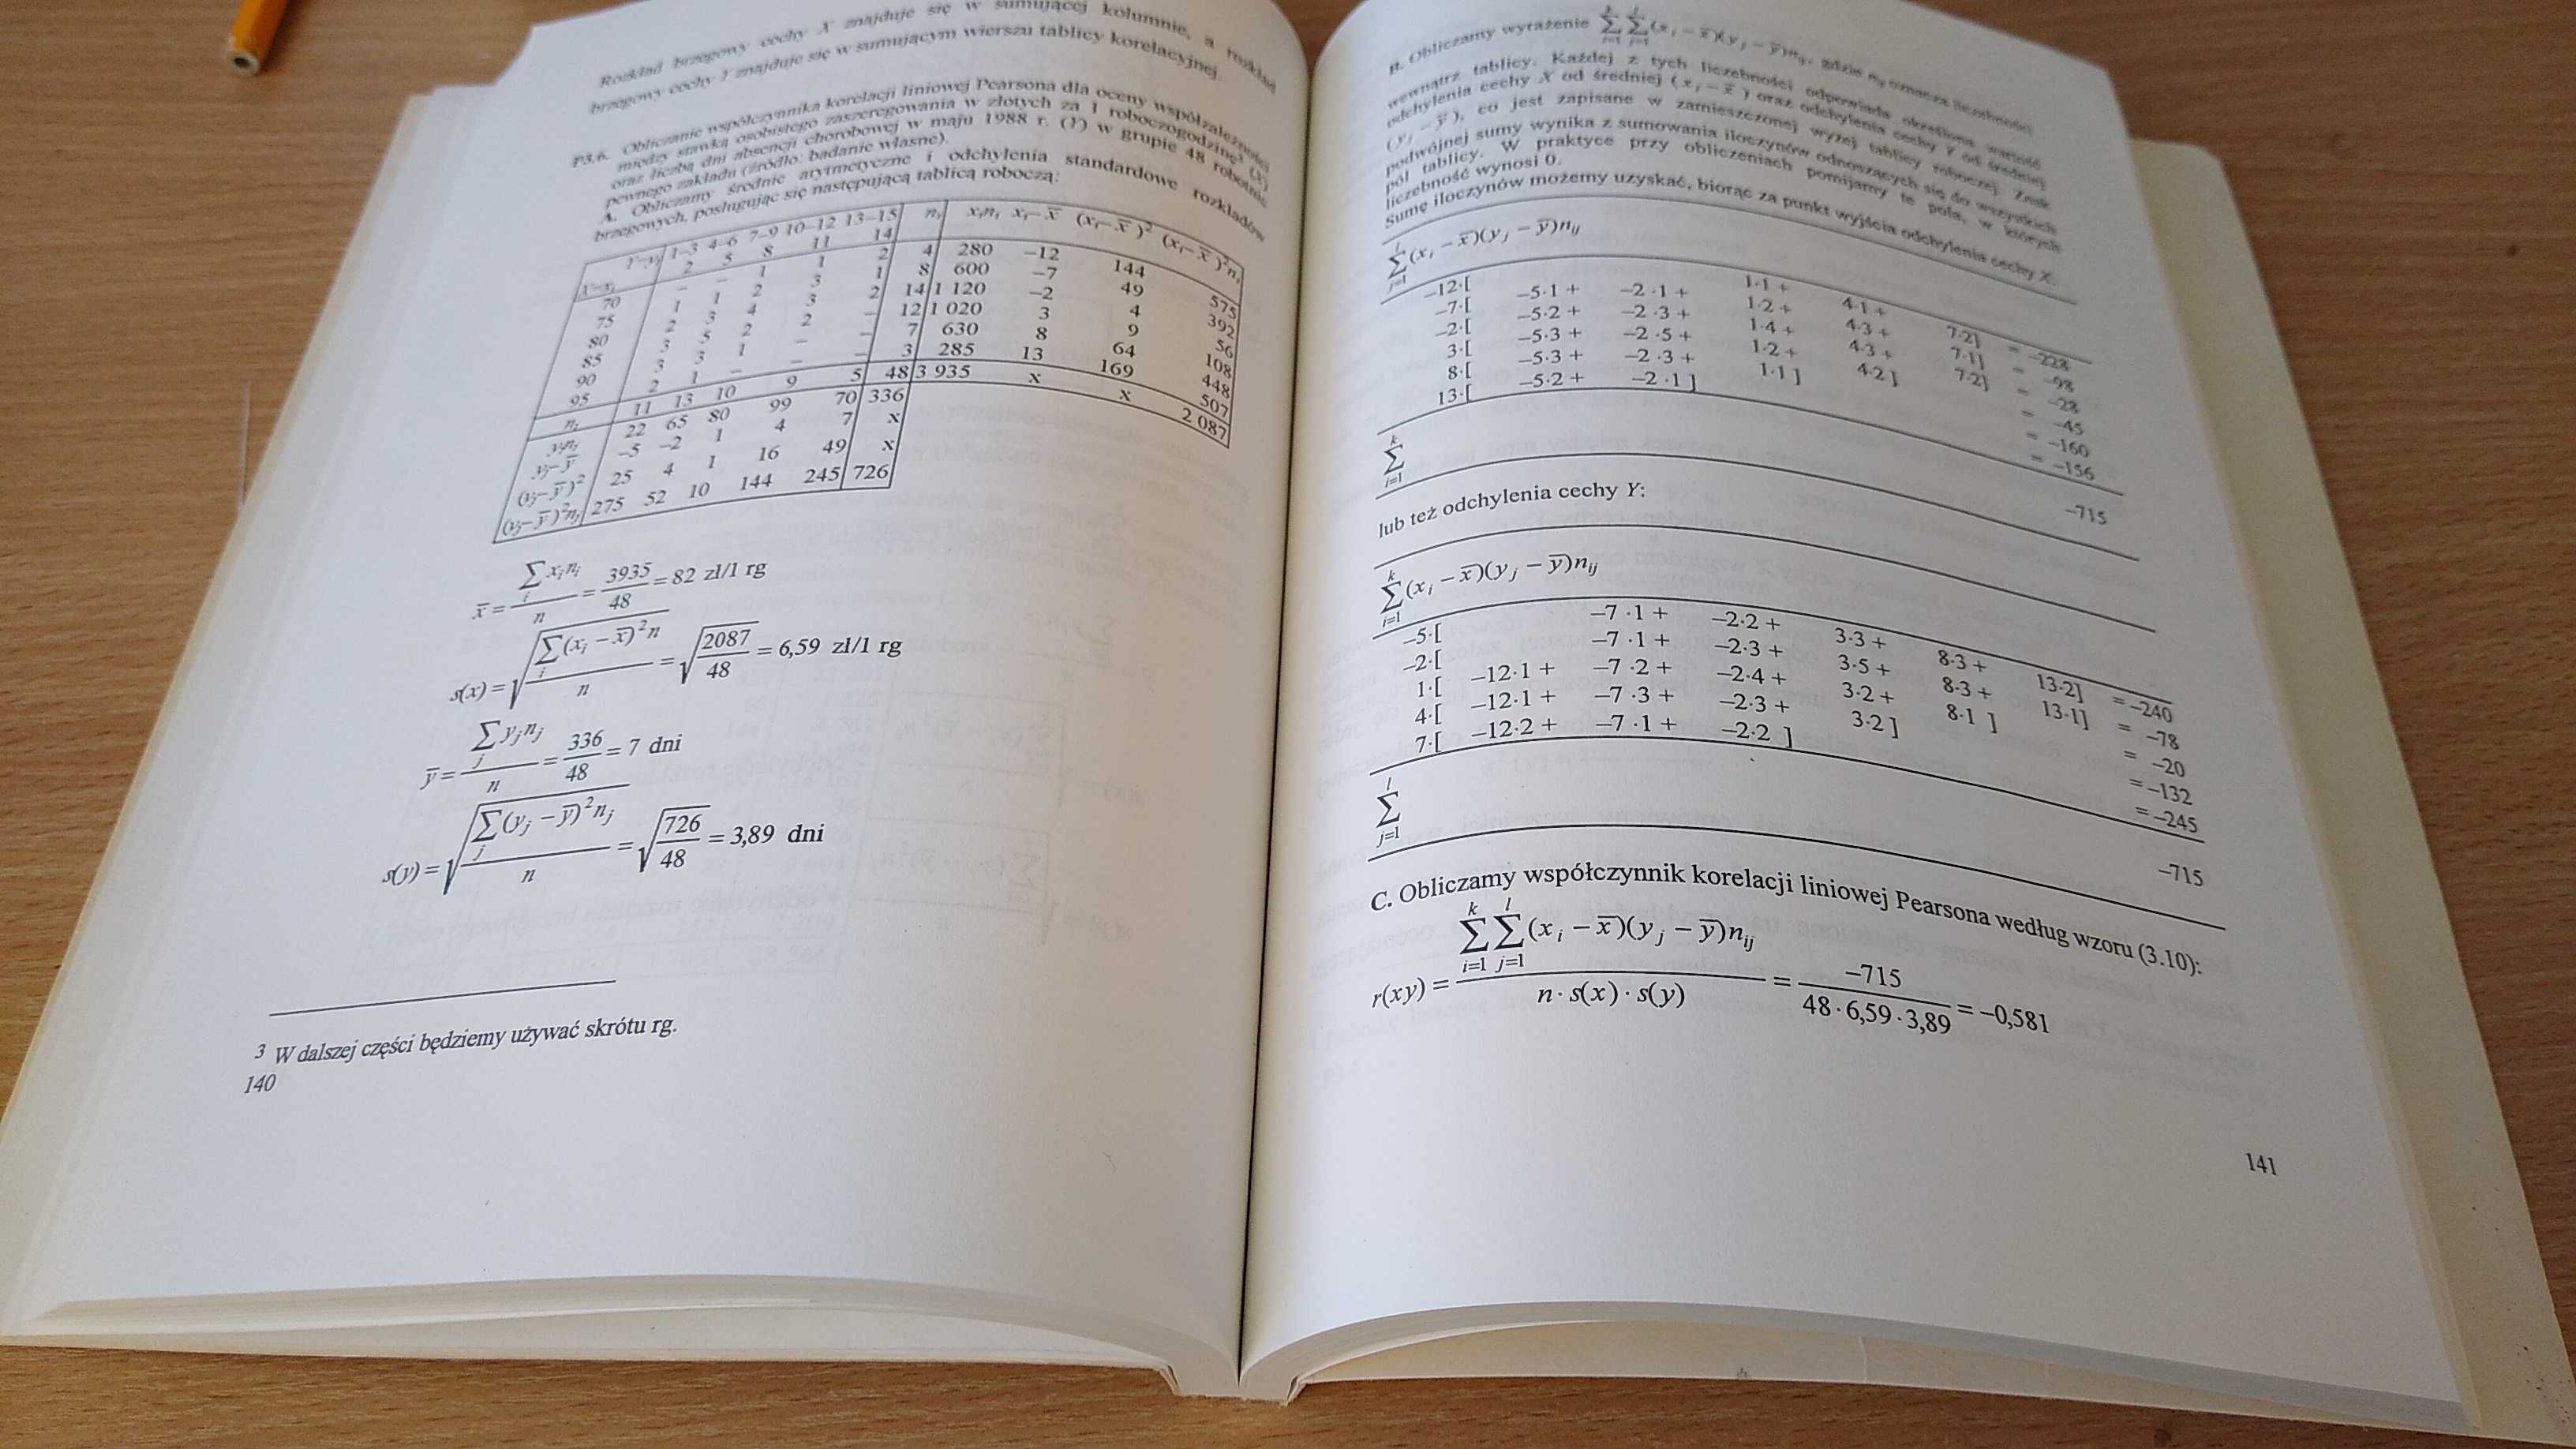 Rozkład brzegowy cechy X znajduje się w sumującej kolumnie, a rozkład
brzegowy cechy Y znajduje się w sumującym wierszu tablicy korelacyjnej.
P3.6. Obliczanie współczynnika korelacji liniowej Pearsona dla oceny współzależności
między stawką osobistego zaszeregowania w złotych za 1 roboczogodzinę³ (X)
oraz liczbą dni absencji chorobowej w maju 1988 r. (Y) w grupie 48 robotnic
pewnego zakładu (źródło: badanie własne).
A. Obliczamy średnie arytmetyczne i odchylenia standardowe rozkładów
brzegowych, posługując się następującą tablicą roboczą:
Y–yⱼ 1–3 4–6 7–9 10–12 13–15 nᵢ xᵢnᵢ xᵢ–x̅ (xᵢ–x̅)² (xᵢ–x̅)²nᵢ
X–xᵢ 2 5 8 11 14
70 – – 1 1 2 4 280 –12 144 575
75 1 1 2 3 1 8 600 –7 49 392
80 2 3 4 3 2 14 1 120 –2 4 56
85 3 5 2 2 – 12 1 020 3 9 108
90 3 3 1 – – 7 630 8 64 448
95 2 1 – – – 3 285 13 169 507
nⱼ 11 13 10 9 5 48 3 935 x x 2 087
yⱼnⱼ 22 65 80 99 70 336
yⱼ–y̅ –5 –2 1 4 7 x
(yⱼ–y̅)² 25 4 1 16 49 x
(yⱼ–y̅)²nⱼ 275 52 10 144 245 726
x̅ = ∑ᵢ xᵢnᵢ / n = 3935 / 48 = 82 zł/1 rg
s(x) = √(∑ᵢ (xᵢ – x̅)²n / n) = √(2087 / 48) = 6,59 zł/1 rg
y̅ = ∑ⱼ yⱼnⱼ / n = 336 / 48 = 7 dni
s(y) = √(∑ⱼ (yⱼ – y̅)²nⱼ / n) = √(726 / 48) = 3,89 dni
3 W dalszej części będziemy używać skrótu rg.
140
B. Obliczamy wyrażenie ∑ᵢ₌₁ᵏ ∑ⱼ₌₁ˡ (xᵢ – x̅)(yⱼ – y̅)nᵢⱼ, gdzie nᵢⱼ oznacza liczebności
wewnątrz tablicy. Każdej z tych liczebności odpowiada określona wartość
odchylenia cechy X od średniej (xᵢ – x̅) oraz odchylenia cechy Y od średniej
(yⱼ – y̅), co jest zapisane w zamieszczonej wyżej tablicy roboczej. Znak
podwójnej sumy wynika z sumowania iloczynów odnoszących się do wszystkich
pól tablicy. W praktyce przy obliczeniach pomijamy te pola, w których
liczebność wynosi 0.
Sumę iloczynów możemy uzyskać, biorąc za punkt wyjścia odchylenia cechy X:
∑ⱼ₌₁ˡ (xᵢ – x̅)(yⱼ – y̅)nᵢⱼ
–12·[ 1·1 + 4·1 + 7·2] = –228
–7·[ –5·1 + –2·1 + 1·2 + 4·3 + 7·1] = –98
–2·[ –5·2 + –2·3 + 1·4 + 4·3 + 7·2] = –28
3·[ –5·3 + –2·5 + 1·2 + 4·2] = –45
8·[ –5·3 + –2·3 + 1·1] = –160
13·[ –5·2 + –2·1] = –156
∑ᵢ₌₁ᵏ –715
lub też odchylenia cechy Y:
∑ᵢ₌₁ᵏ (xᵢ – x̅)(yⱼ – y̅)nᵢⱼ
–5·[ –7·1 + –2·2 + 3·3 + 8·3 + 13·2] = –240
–2·[ –7·1 + –2·3 + 3·5 + 8·3 + 13·1] = –78
1·[ –12·1 + –7·2 + –2·4 + 3·2 + 8·1] = –20
4·[ –12·1 + –7·3 + –2·3 + 3·2] = –132
7·[ –12·2 + –7·1 + –2·2] = –245
∑ⱼ₌₁ˡ –715
C. Obliczamy współczynnik korelacji liniowej Pearsona według wzoru (3.10):
r(xy) = ∑ᵢ₌₁ᵏ ∑ⱼ₌₁ˡ (xᵢ – x̅)(yⱼ – y̅)nᵢⱼ / n · s(x) · s(y) = –715 / 48 · 6,59 · 3,89 = –0,581
141